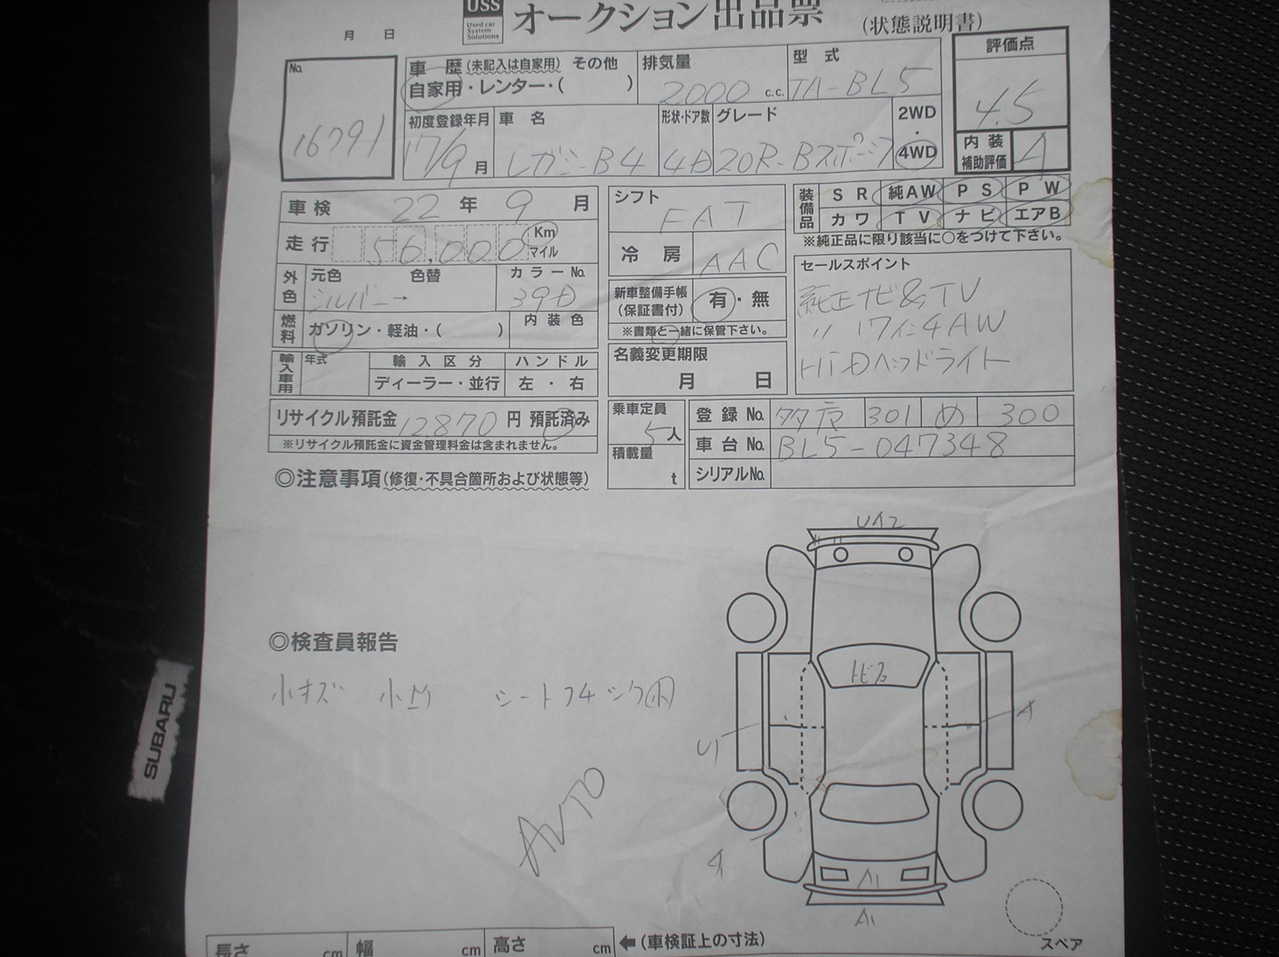 USS
Used car
System
Solutions
オークション出品票
(状態説明書)
月 日
No.
16791
車 歴 (未記入は自家用) その他
自家用・レンター・( )
排気量
2000 c.c.
型 式
TA-BL5
評価点
4.5
初度登録年月
17/9月
車 名
レガシーB4
形状・ドア数
4D
グレード
20R-Bスポーツ
2WD
・
4WD
内 装
補助評価
A
車検 22年 9月
走行 56,000
Km
マイル
外色
元色 色替
シルバー→
カラーNo.
39D
燃料
ガソリン・軽油・( )
内 装 色
輸入車用
年式
輸 入 区 分
ディーラー・並行
ハ ン ド ル
左 ・ 右
シフト
FAT
冷 房
AAC
新車整備手帳
(保証書付)
有・無
※書類と一緒に保管下さい。
名義変更期限
月 日
装備品
S R 純AW P S P W
カ ワ T V ナ ビ エアB
※純正品に限り該当に○をつけて下さい。
セールスポイント
純正ナビ&TV
〃 17インチAW
HiDヘッドライト
リサイクル預託金 12870円 預託済み
※リサイクル預託金に資金管理料金は含まれません。
乗車定員
5人
積載量
t
登 録 No. 301 め 300
車 台 No. BL5-047348
シリアルNo.
◎注意事項(修復・不具合箇所および状態等)
◎検査員報告
小キズ 小凹
AUTO
トビ
U1
A
A1
A1
SUBARU
スペア
長さ cm
幅 cm
高さ cm
(車検証上の寸法)